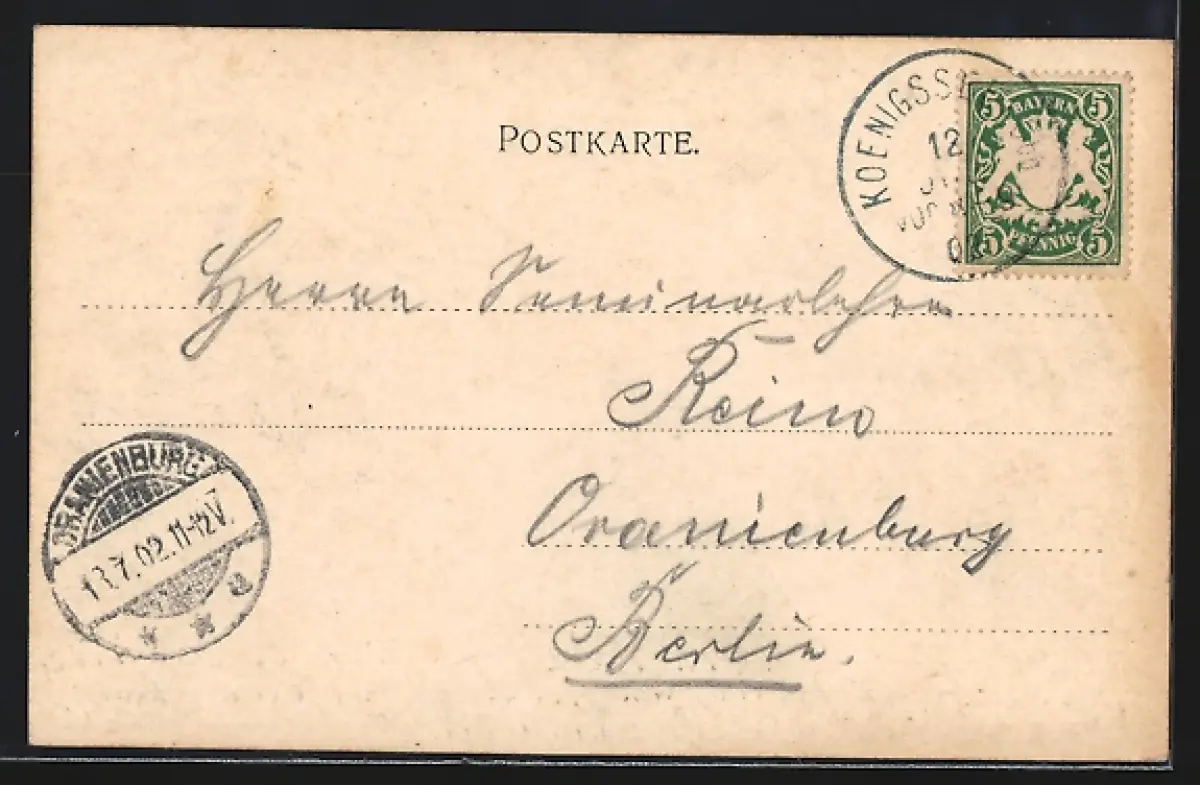 POSTKARTE.
KOENIGSSEE
12
VOR
5 BAYERN 5
5 PFENNIG 5
Herrn Seminarlehrer
Reino
Oranienburg
Berlin.
ORANIENBURG
13.7.02.11-12V.
* * a